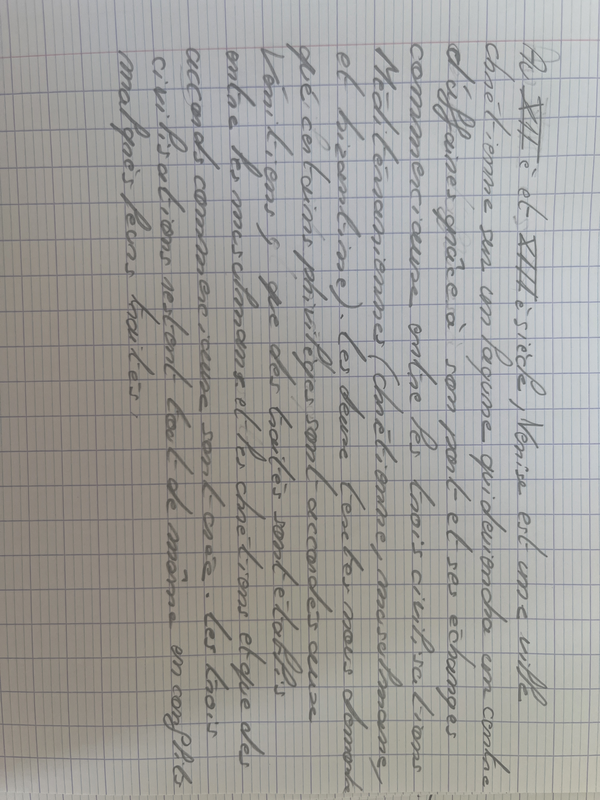 Au XIIè et XIIIè siècle, Venise est une ville
chrétienne sur un lagune qui deviendra un centre
d'affaires grâce à son port et ses échanges
commerciaux entre les trois civilisations
Méditéraniennes (chrétienne, musulmane,
et bizantine). Les deux textes nous
que certains privilèges sont accordés aux
Vénitiens, que des traités sont établis
entre les musulmans et les chrétiens et que des
accords commerciaux sont crée. Les trois
civilisations restent tout de même en conflits
malgrès leurs traités.